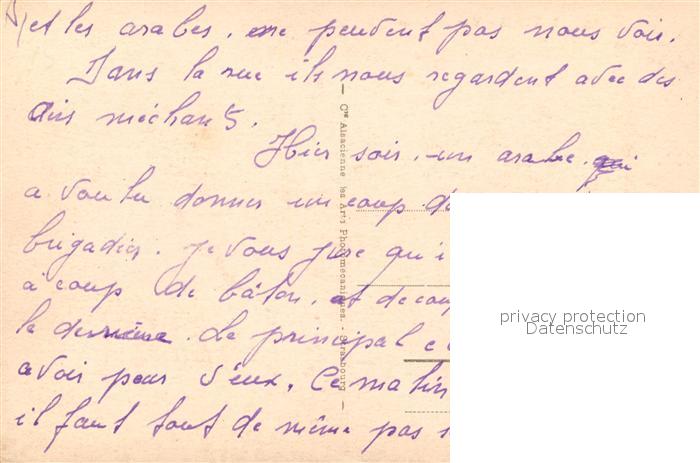 et les arabes. ne peudent pas nous voir.
Dans la rue ils nous regardent avec des
airs méchants.
Hier soir. un arabe. qui
a voulu donner un coup d
brigadier. je vous jure qu'i
à coup de bâton. et de coup
le dernière. Le principal c
avoir peur d'eux. Ce matin
il faut tout de même pas
Cie Alsacienne des Arts Photomécaniques. - Strasbourg
privacy protection
Datenschutz